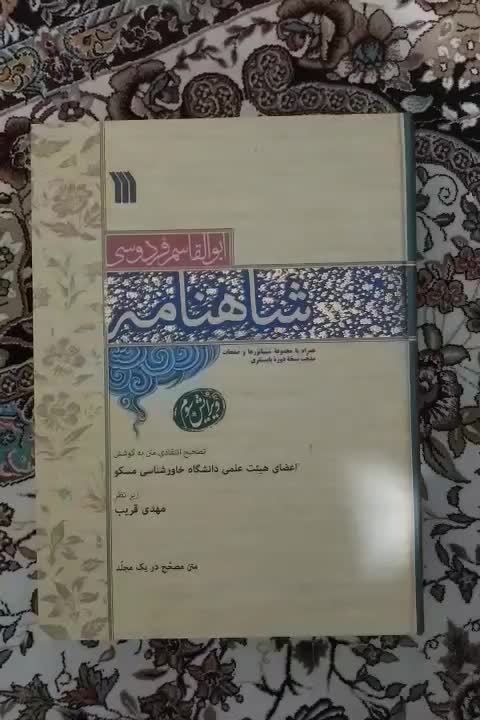 ابوالقاسم فردوسی
شاهنامه
همراه با مجموعهٔ مینیاتورها و صفحات
مذهب نسخهٔ دورهٔ بایسنقری
ویرایش دوم
تصحیح انتقادی متن به کوشش
اعضای هیئت علمی دانشگاه خاورشناسی مسکو
زیر نظر
مهدی قریب
متن مصحّح در یک مجلّد